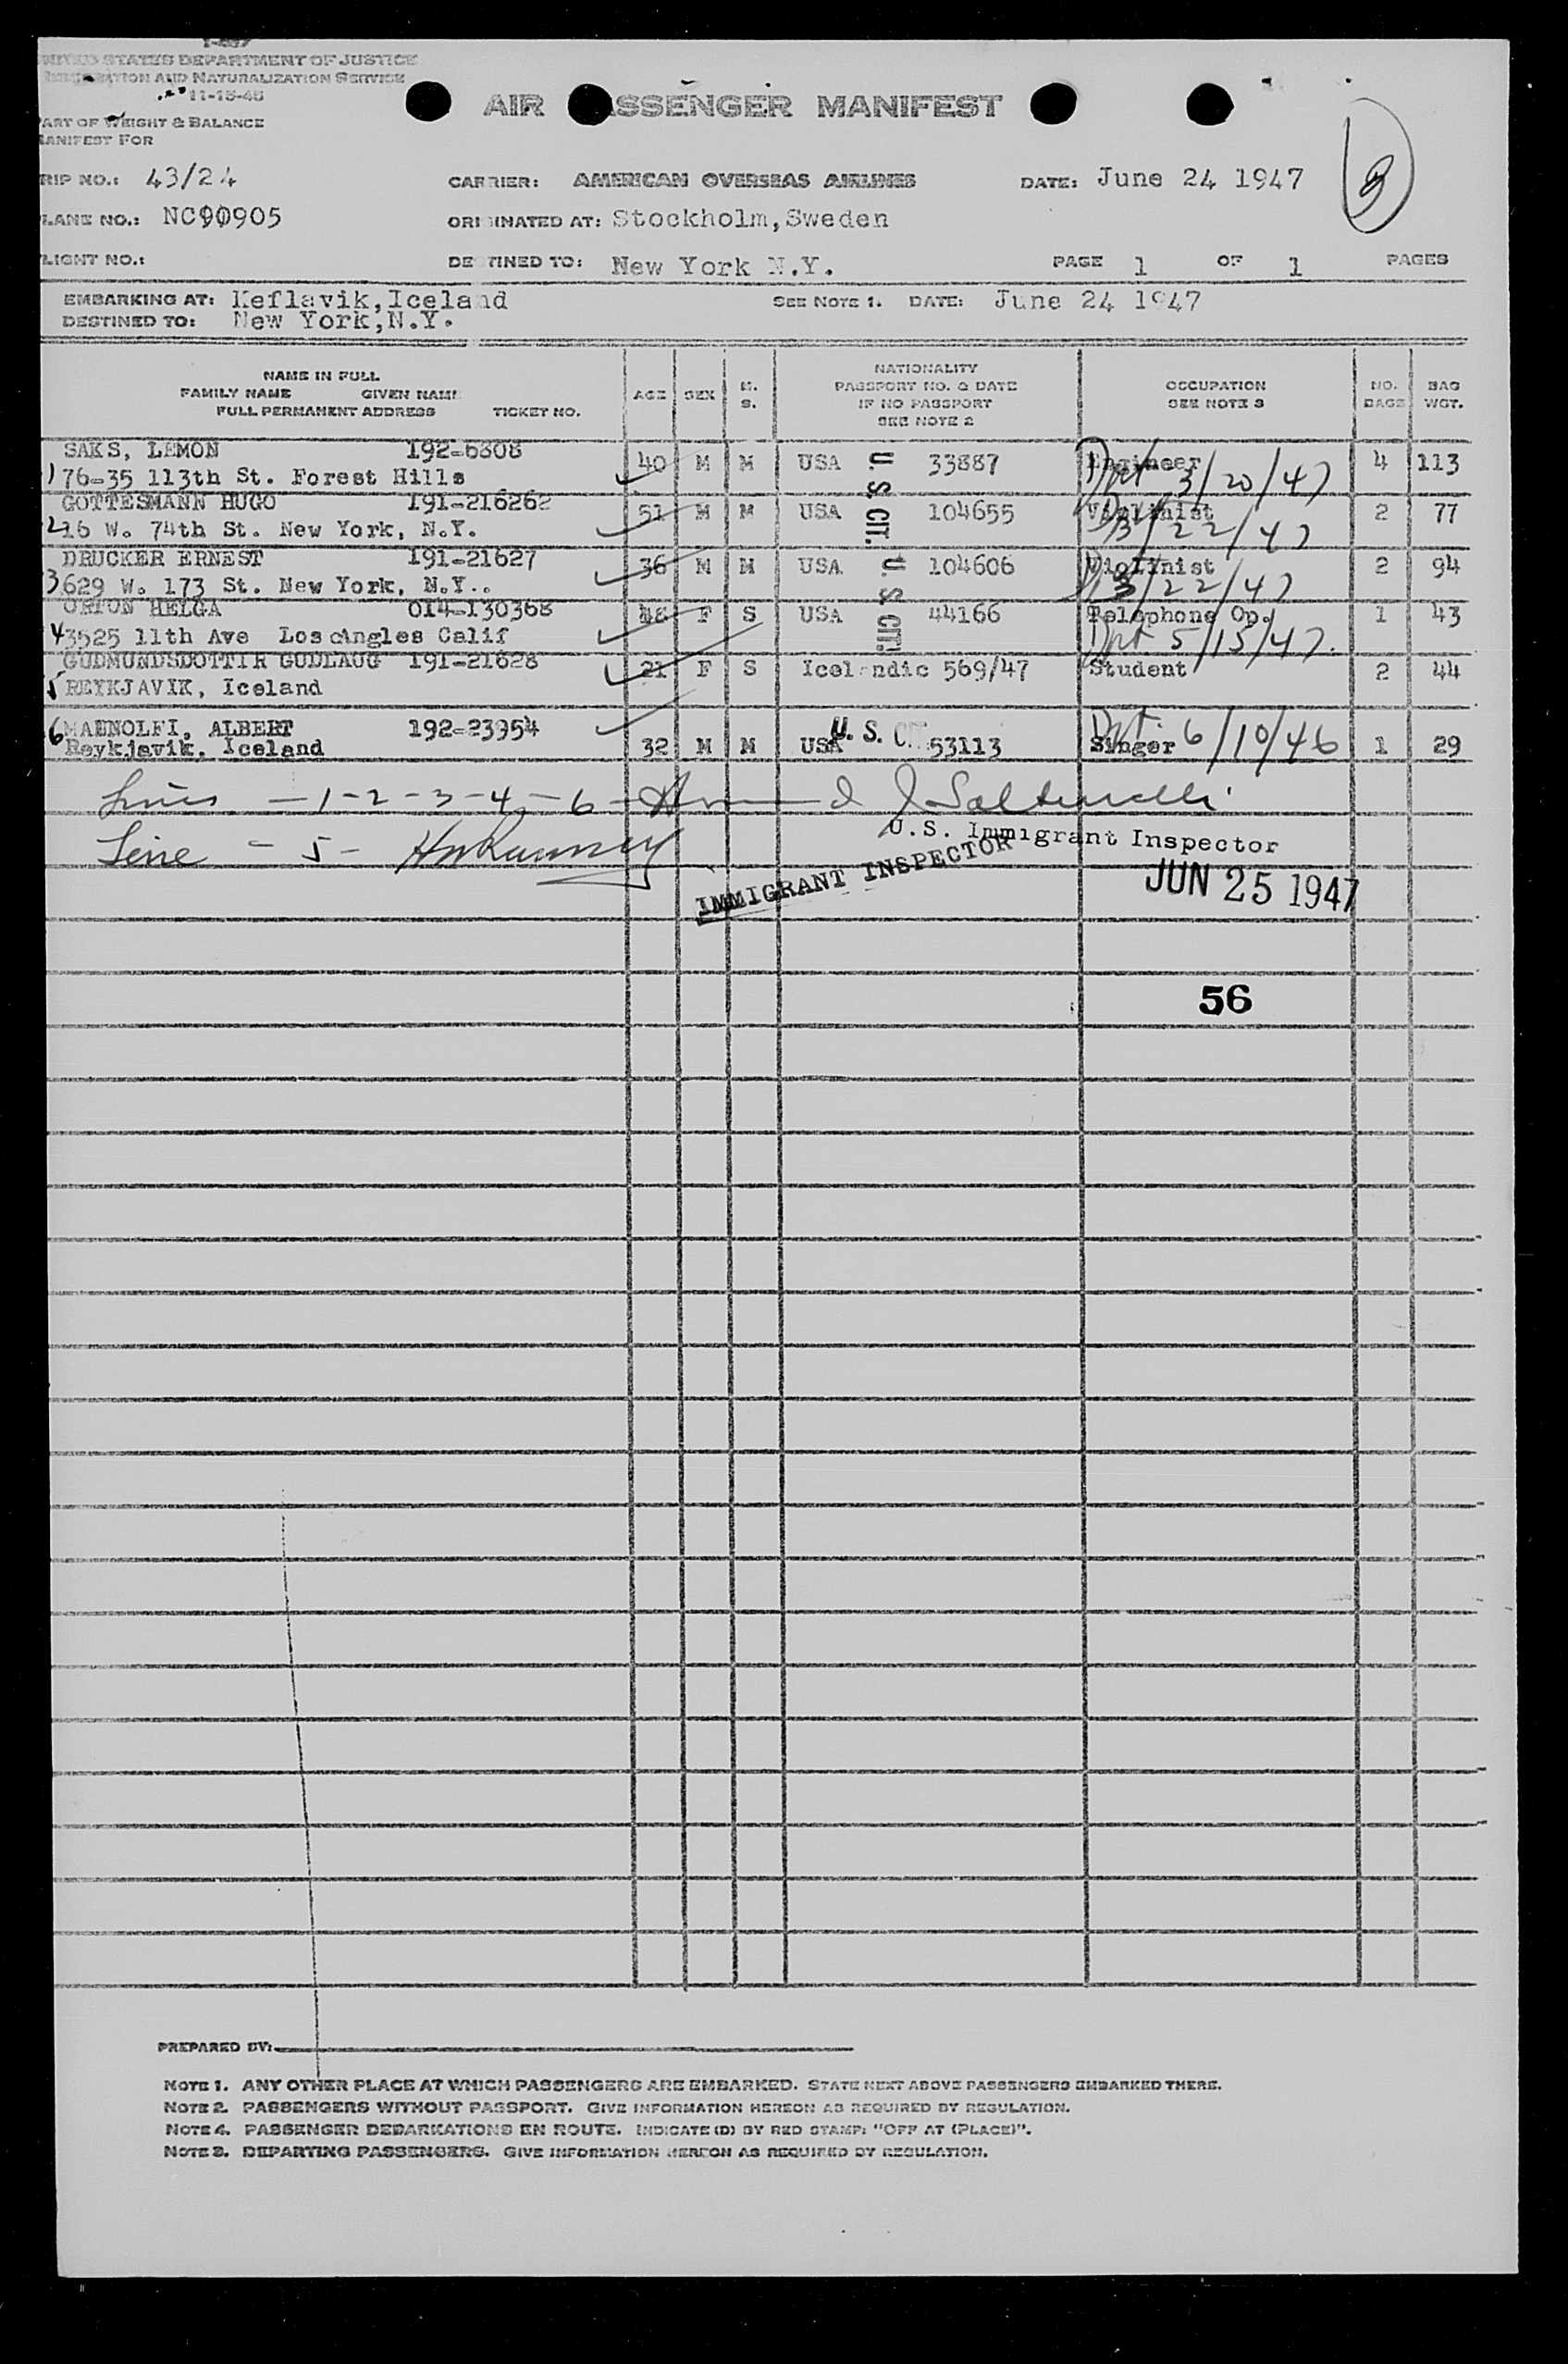 I-487
UNITED STATES DEPARTMENT OF JUSTICE
IMMIGRATION AND NATURALIZATION SERVICE
11-15-45
AIR PASSENGER MANIFEST
PART OF WEIGHT & BALANCE
MANIFEST FOR
TRIP NO.: 43/24 CARRIER: AMERICAN OVERSEAS AIRLINES DATE: June 24 1947
PLANE NO.: NC90905 ORIGINATED AT: Stockholm, Sweden
FLIGHT NO.: DESTINED TO: New York N.Y. PAGE 1 OF 1 PAGES
EMBARKING AT: Keflavik, Iceland SEE NOTE 1. DATE: June 24 1947
DESTINED TO: New York, N.Y.
NAME IN FULL
FAMILY NAME GIVEN NAME
FULL PERMANENT ADDRESS TICKET NO.
AGE SEX M. S.
NATIONALITY
PASSPORT NO. & DATE
IF NO PASSPORT
SEE NOTE 2
OCCUPATION
SEE NOTE 3
NO. BAGS
BAG WGT.
SAKS, LEMON 192-6808
1) 76-35 113th St. Forest Hills 40 M M USA U. S. CIT. 33887 Engineer 4 113
Dpt 3/20/47
GOTTESMANN HUGO 191-216262
2 16 W. 74th St. New York, N.Y. 51 M M USA 104655 Violinist 2 77
3/22/47
DRUCKER ERNEST 191-21627
3 629 W. 173 St. New York, N.Y.. 36 M M USA U. S. CIT. 104606 Violinist 2 94
3/22/47
ORTON HELGA 014-130368
4 3525 11th Ave Los Angles Calif F S USA 44166 Telephone Op. 1 43
Dpt 5/15/47.
GUDMUNDSDOTTIR GUDLAUG 191-21628
5 REYKJAVIK, Iceland 21 F S Icelandic 569/47 Student 2 44
6 ALBERT 192-23954
Reykjavik, Iceland 32 M M USA U. S. CIT. 53113 Singer 1 29
Dpt. 6/10/46
Lines - 1 - 2 - 3 - 4 - 6 -
U.S. Immigrant Inspector
Line - 5 -
IMMIGRANT INSPECTOR
JUN 25 1947
56
PREPARED BY:
NOTE 1. ANY OTHER PLACE AT WHICH PASSENGERS ARE EMBARKED. STATE NEXT ABOVE PASSENGERS EMBARKED THERE.
NOTE 2. PASSENGERS WITHOUT PASSPORT. GIVE INFORMATION HEREON AS REQUIRED BY REGULATION.
NOTE 4. PASSENGER DEBARKATIONS EN ROUTE. INDICATE (D) BY RED STAMP: "OFF AT (PLACE)".
NOTE 3. DEPARTING PASSENGERS. GIVE INFORMATION HEREON AS REQUIRED BY REGULATION.